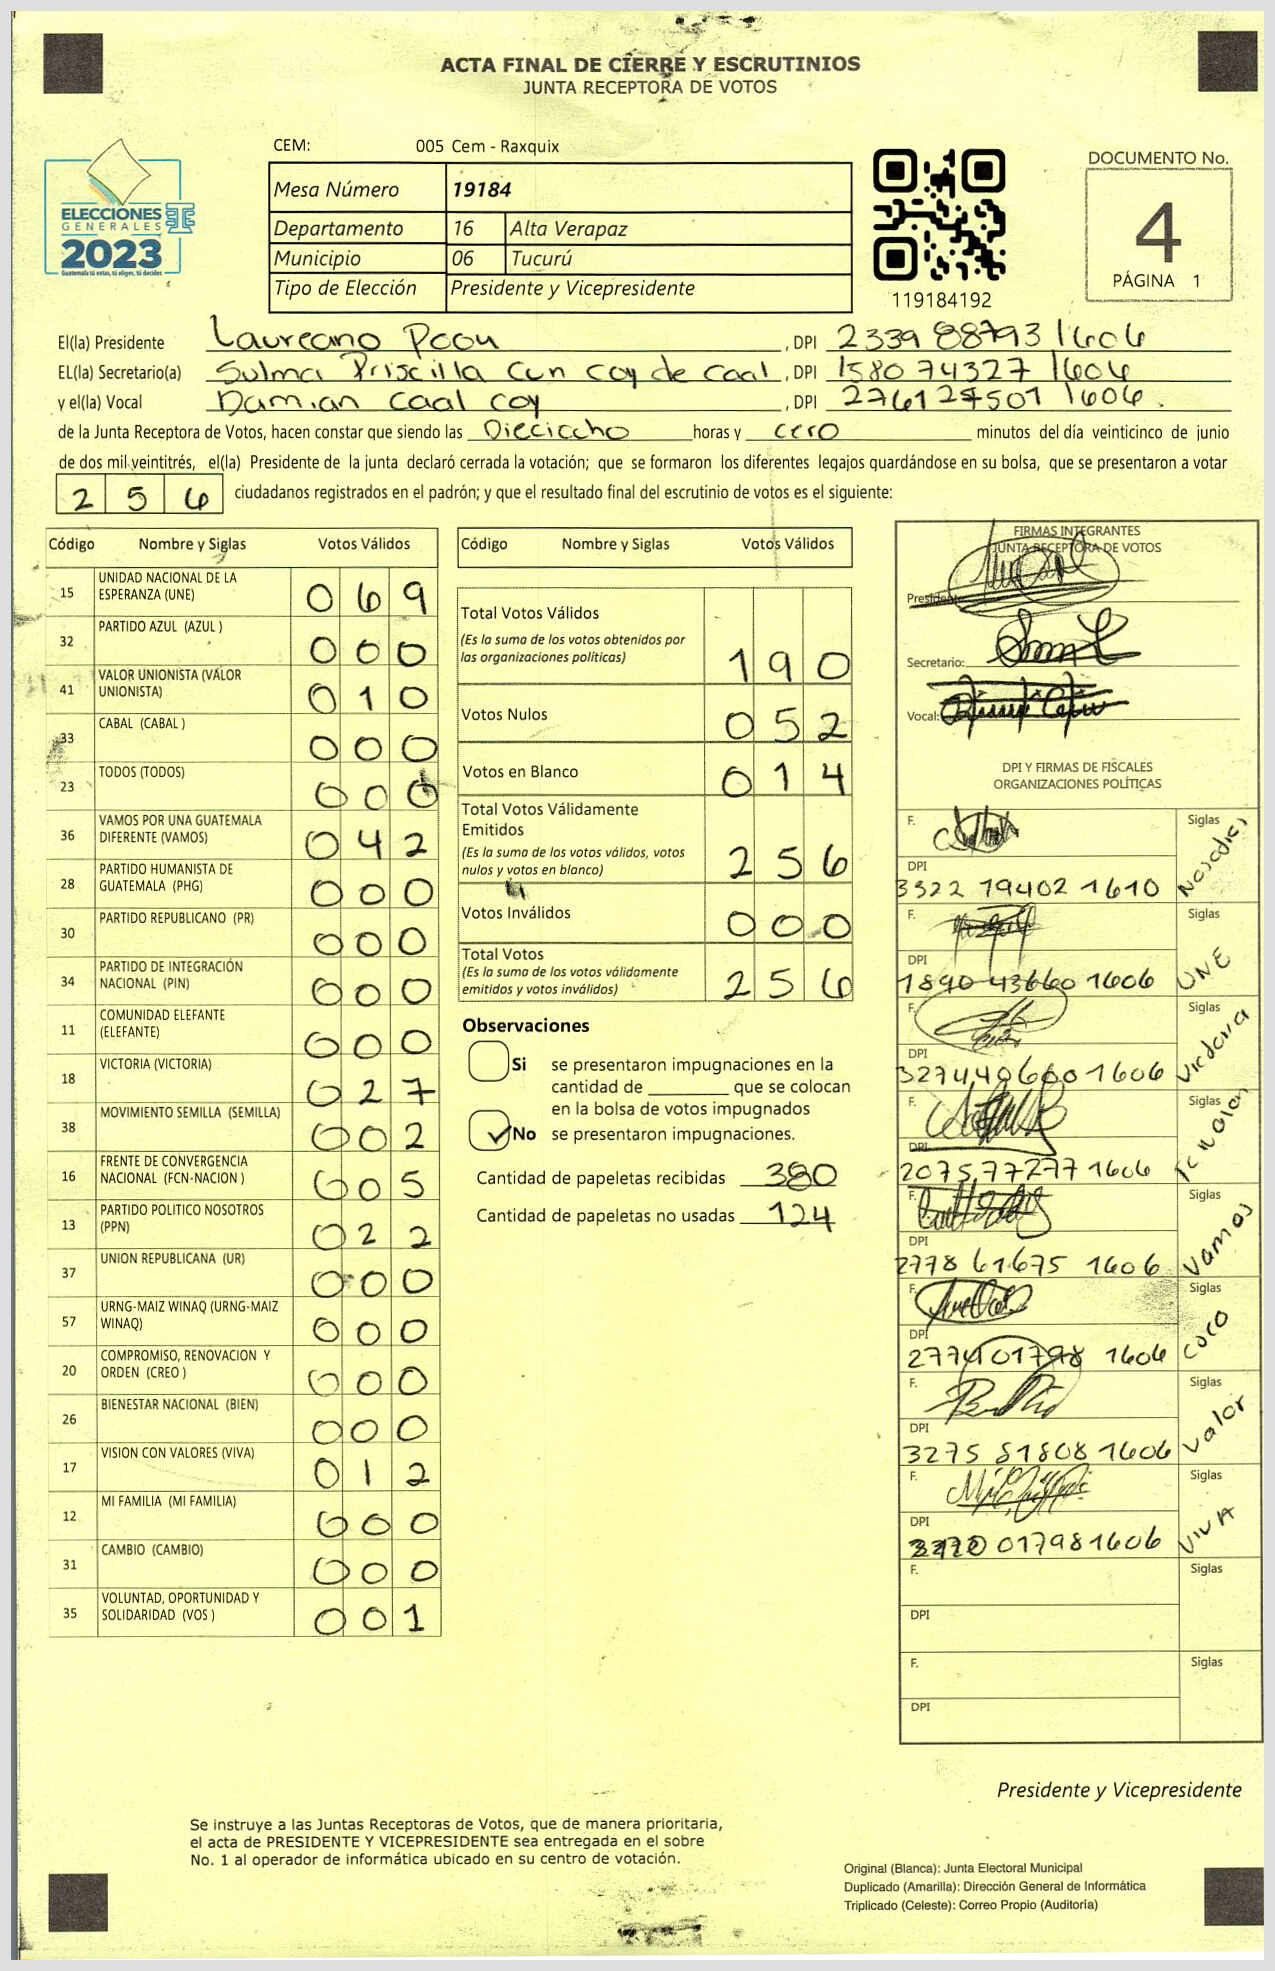 ACTA FINAL DE CIERRE Y ESCRUTINIOS
JUNTA RECEPTORA DE VOTOS
CEM: 005 Cem - Raxquix
DOCUMENTO No.
4
PÁGINA 1
ELECCIONES
GENERALES
2023
Guatemala tú votas, tú eliges, tú decides
Mesa Número 19184
Departamento 16 Alta Verapaz
Municipio 06 Tucurú
Tipo de Elección Presidente y Vicepresidente
119184192
El(la) Presidente Laureano Poou, DPI 2339 88793 1606
EL(la) Secretario(a) Sulma Priscilla Cun Coy de Caal, DPI 1580 74327 1606
y el(la) Vocal Damian Caal Coy, DPI 2761 27501 1606.
de la Junta Receptora de Votos, hacen constar que siendo las Dieciocho horas y cero minutos del día veinticinco de junio
de dos mil veintitrés, el(la) Presidente de la junta declaró cerrada la votación; que se formaron los diferentes legajos guardándose en su bolsa, que se presentaron a votar
256 ciudadanos registrados en el padrón; y que el resultado final del escrutinio de votos es el siguiente:
Código Nombre y Siglas Votos Válidos
15 UNIDAD NACIONAL DE LA ESPERANZA (UNE) 069
32 PARTIDO AZUL (AZUL ) 000
41 VALOR UNIONISTA (VALOR UNIONISTA) 010
33 CABAL (CABAL ) 000
23 TODOS (TODOS) 000
36 VAMOS POR UNA GUATEMALA DIFERENTE (VAMOS) 042
28 PARTIDO HUMANISTA DE GUATEMALA (PHG) 000
30 PARTIDO REPUBLICANO (PR) 000
34 PARTIDO DE INTEGRACIÓN NACIONAL (PIN) 000
11 COMUNIDAD ELEFANTE (ELEFANTE) 000
18 VICTORIA (VICTORIA) 027
38 MOVIMIENTO SEMILLA (SEMILLA) 002
16 FRENTE DE CONVERGENCIA NACIONAL (FCN-NACION ) 005
13 PARTIDO POLITICO NOSOTROS (PPN) 022
37 UNION REPUBLICANA (UR) 000
57 URNG-MAIZ WINAQ (URNG-MAIZ WINAQ) 000
20 COMPROMISO, RENOVACION Y ORDEN (CREO ) 000
26 BIENESTAR NACIONAL (BIEN) 000
17 VISION CON VALORES (VIVA) 012
12 MI FAMILIA (MI FAMILIA) 000
31 CAMBIO (CAMBIO) 000
35 VOLUNTAD, OPORTUNIDAD Y SOLIDARIDAD (VOS ) 001
Código Nombre y Siglas Votos Válidos
Total Votos Válidos
(Es la suma de los votos obtenidos por
las organizaciones políticas) 190
Votos Nulos 052
Votos en Blanco 014
Total Votos Válidamente
Emitidos
(Es la suma de los votos válidos, votos
nulos y votos en blanco) 256
Votos Inválidos 000
Total Votos
(Es la suma de los votos válidamente
emitidos y votos inválidos) 256
Observaciones
Si se presentaron impugnaciones en la
cantidad de ________ que se colocan
en la bolsa de votos impugnados
No se presentaron impugnaciones.
Cantidad de papeletas recibidas 380
Cantidad de papeletas no usadas 124
FIRMAS INTEGRANTES
JUNTA RECEPTORA DE VOTOS
Presidente:
Secretario:
Vocal:
DPI Y FIRMAS DE FISCALES
ORGANIZACIONES POLÍTICAS
F. Siglas
DPI
3322 19402 1610
F. Siglas UNE
DPI
1890 43660 1606
F. Siglas Victoria
DPI
3274406601606
F. Siglas
DPI
2075 77277 1606
F. Siglas Vamos
DPI
2778 61675 1606
F. Siglas COCO
DPI
2774 01798 1606
F. Siglas Valor
DPI
3275 81808 1606
F. Siglas VIVA
DPI
017981606
F. Siglas
DPI
F. Siglas
DPI
Presidente y Vicepresidente
Se instruye a las Juntas Receptoras de Votos, que de manera prioritaria,
el acta de PRESIDENTE Y VICEPRESIDENTE sea entregada en el sobre
No. 1 al operador de informática ubicado en su centro de votación.
Original (Blanca): Junta Electoral Municipal
Duplicado (Amarilla): Dirección General de Informática
Triplicado (Celeste): Correo Propio (Auditoría)